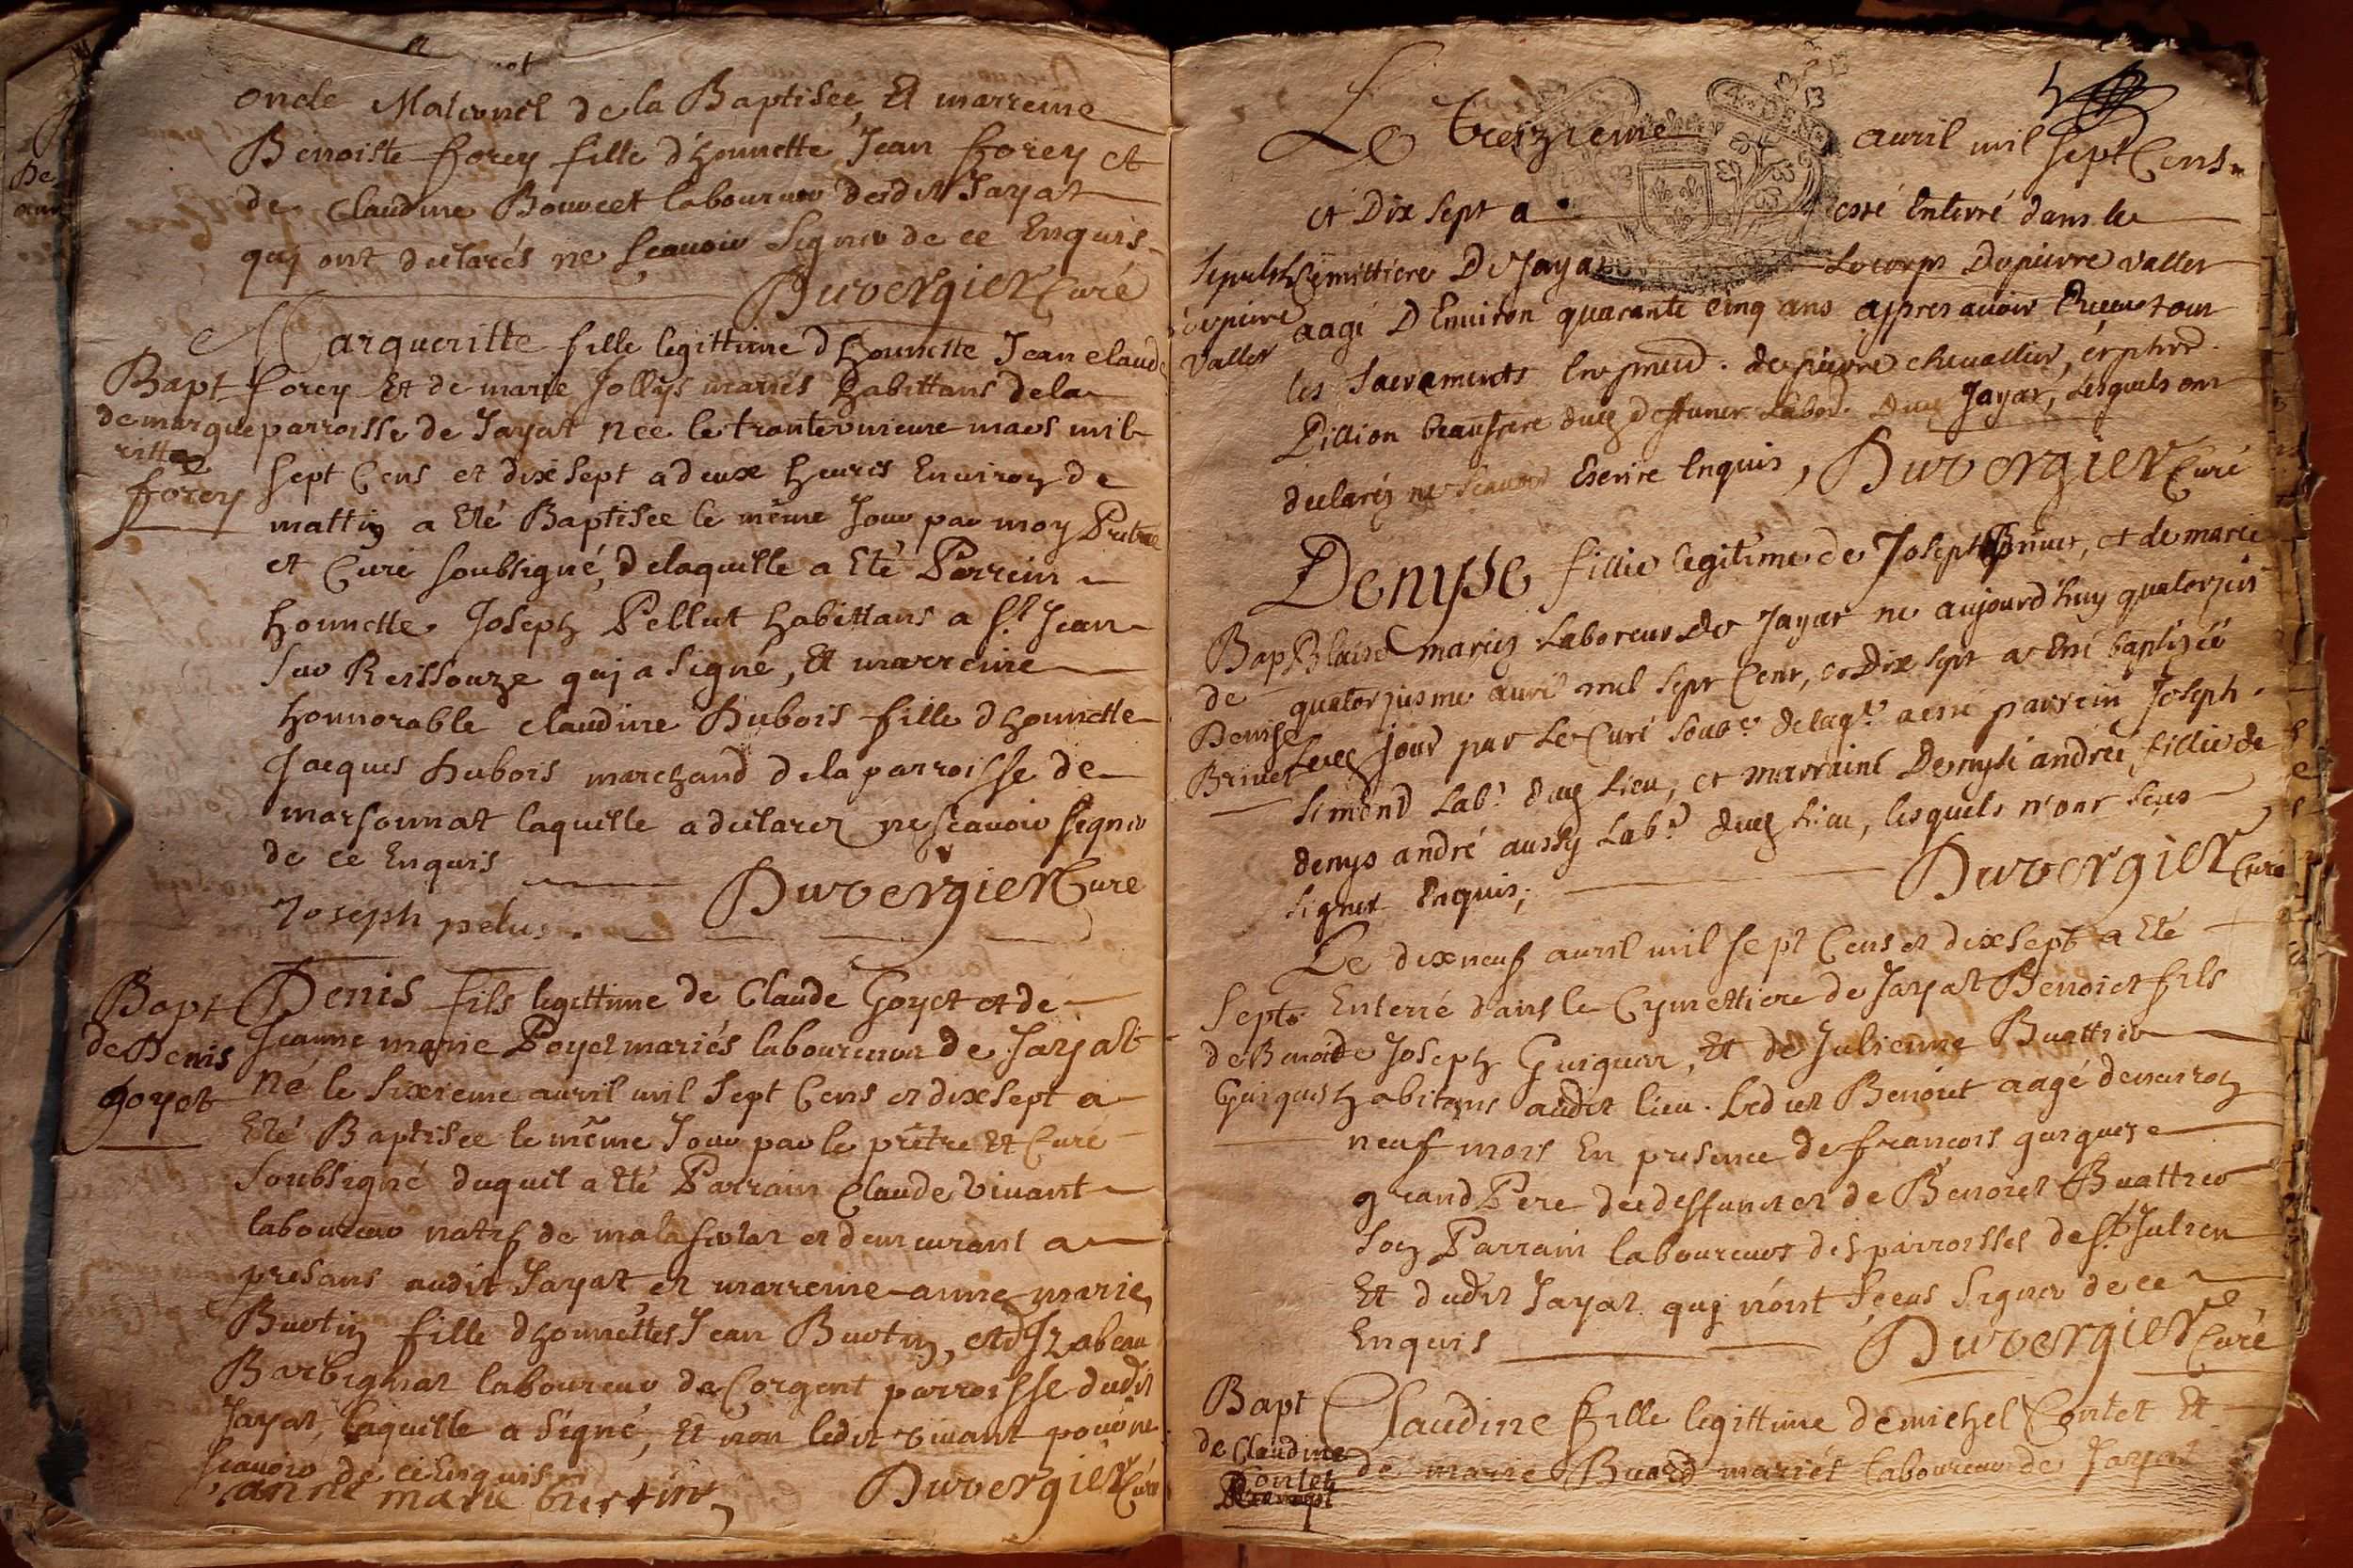 oncle Maternel de la Baptisee, Et marreine
Benoiste forey fille d'honnette Jean forey et
de Claudine Bouvcet laboureur dudit Jayat
quj ont declarés ne sçauoir signer de ce Enquis
Duvergier Curé
Margueritte fille legittime d'honnette Jean claude
Bapt
de margue
ritte
forey
forey Et de marie Jollys mariés habittans de la
parroisse de Jayat née le trante vnieme mars mil
sept Cens et dix sept a deux heures Enuiron de
mattin a Eté Baptisee le même Jour par moy Prêtre
et Curé soubsigné, de laquelle a Eté Parrein
honnette Joseph Pellut habittans a St. Jean
sur Reissouze quj a signé, Et marreine
honnorable claudine Dubois fille d'honnette
Jacques Dubois marchand de la parroisse de
marsonnat laquelle a declarer ne sçauoir signer
de ce Enquis
Duvergier Curé
Joseph pelu
Bapt
de Denis
goyet
Denis fils legittime de Claude Goyet et de
Jeanne marie Poyet mariés laboureur de Jayat
né le sixieme auril mil sept Cens et dix sept a
Eté Baptisee le même Jour par le prêtre Et Curé
soubsigné duquel a Eté Parrain Claude Viuant
laboureur natif de malafretaz et demeurant a
presans audit Jayat et marreine anne marie
Burtin fille d'honnettes Jean Burtin, et d'Izabeau
Barbignat laboureur de Corgent parroisse dudit
Jayat, laquelle a signé, Et non ledit viuant pour ne
scauoir de ce Enquis
anne marie burtin
Duvergier Curé
Le treizieme auril mil sept Cens
et Dix sept a esté Enterré dans le
Sepult
de pierre
Vallet
semittiere De Jayat Le corps De pierre vallet
aagé D'Enuiron quarante cinq ans appres auoir Receu tous
les Sacrements En presend. de pierre cheuallier, et phird.
Pillion beaufrere duq deffunct Labor. duq Jayat, Lesquels ont
declaréz ne scauoir Escrire Enquis, Duvergier Curé
Denyse fillie legitime de Joseph Briuet, et de marie
Bap
de
Denise
Briuet
Blaise mariez Laboreur de Jayat ne aujourdhuy quatorzies
quatorziesme auril mil sept Cent, et Dix sept a Esté baptizée
led jour par Le Curé soubs. de laq. a esté parrein Joseph
Simond Lab. duq Lieu, et marraine Denyse andréé, fillie de
denys andré aussy Lab. duq Lieu, lesquels n'ont sçeu
signer Enquis;
Duvergier Curé
Le dix neuf auril mil sept Cens et dix sept a Eté
Sept
de Benoit
Guigues
Enterré dans le Cymettiere de Jayat Benoict fils
de Joseph Guiguer, Et de Julienne Buattier
habitans audit lieu. Ledict Benoict aagé denuiron
neuf mois En presence de francois guigues
grand Pere du deffunct et de Benoict Buattier
son Parrain laboureurs des parroisses de St. Julien
Et dudit Jayat quj n'ont sçeus signer de ce
Enquis
Duvergier Curé
Bapt
de Claudine
Contet
Claudine fille legittime de michel Contet Et
de marie Buard mariés laboureur de Jayat